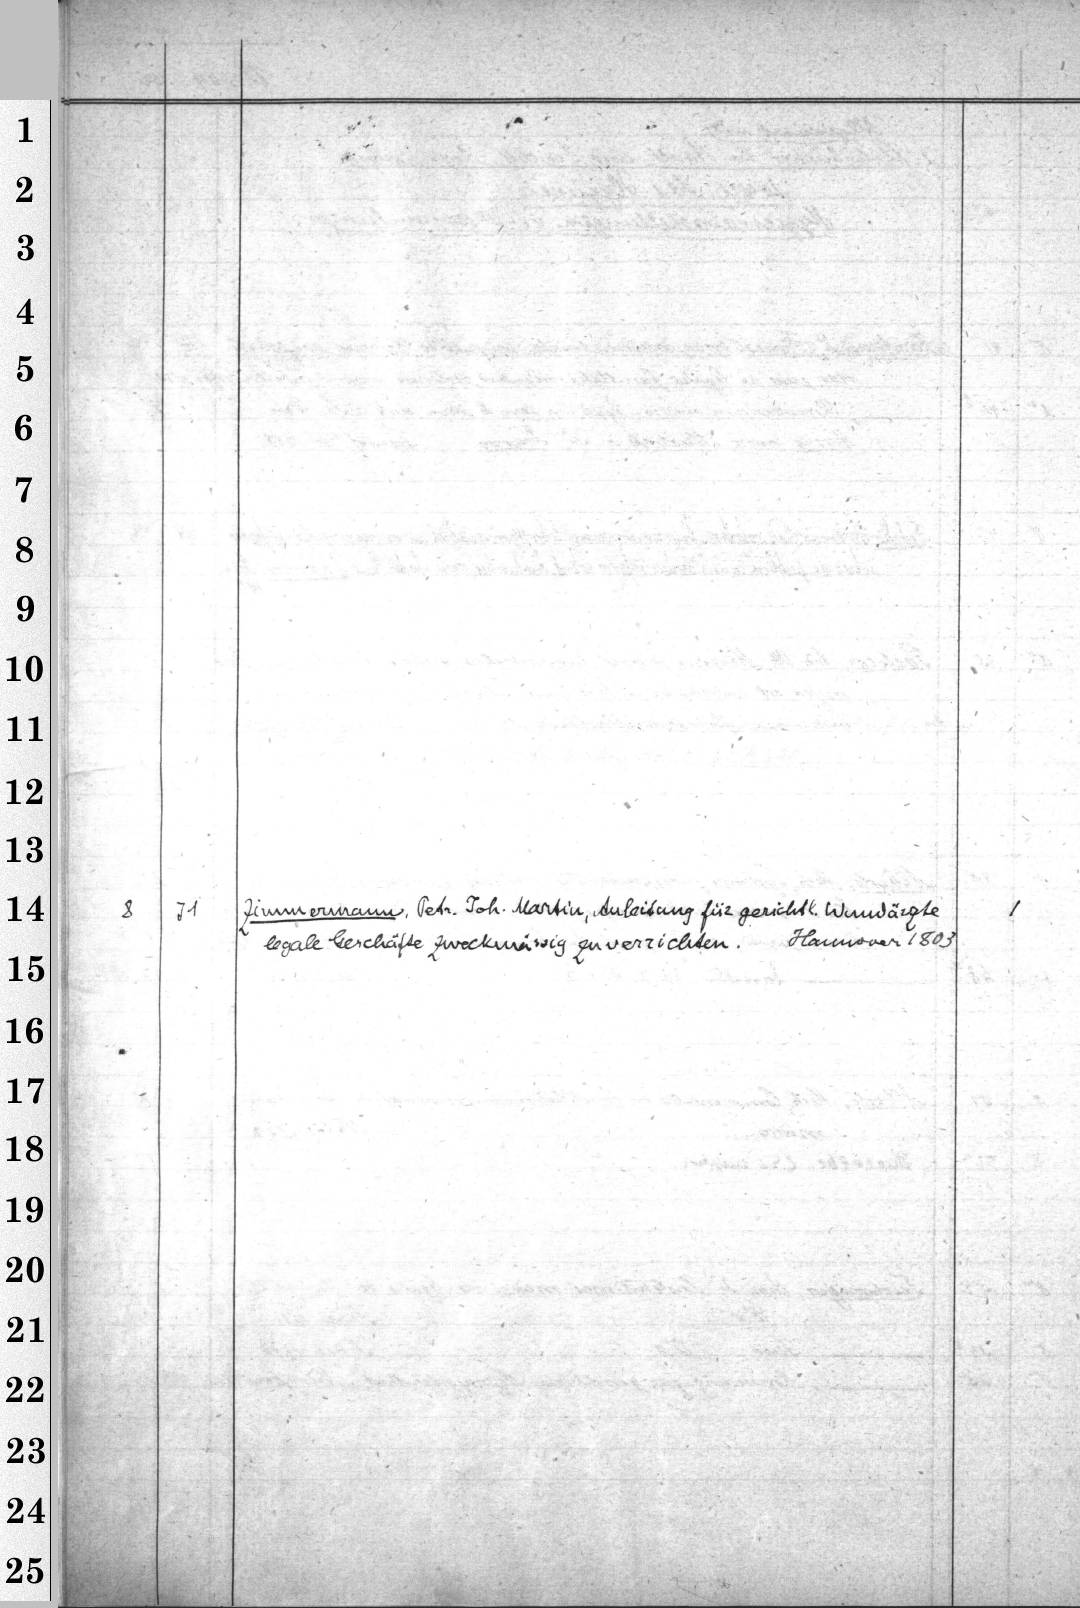 1
2
3
4
5
6
7
8
9
10
11
12
13
14 8 71 Zimmermann, Petr. Joh. Martin, Anleitung für gerichtl. Wundärzte 1
legale Geschäfte zweckmässig zu verrichten. Hannover 1803
15
16
17
18
19
20
21
22
23
24
25